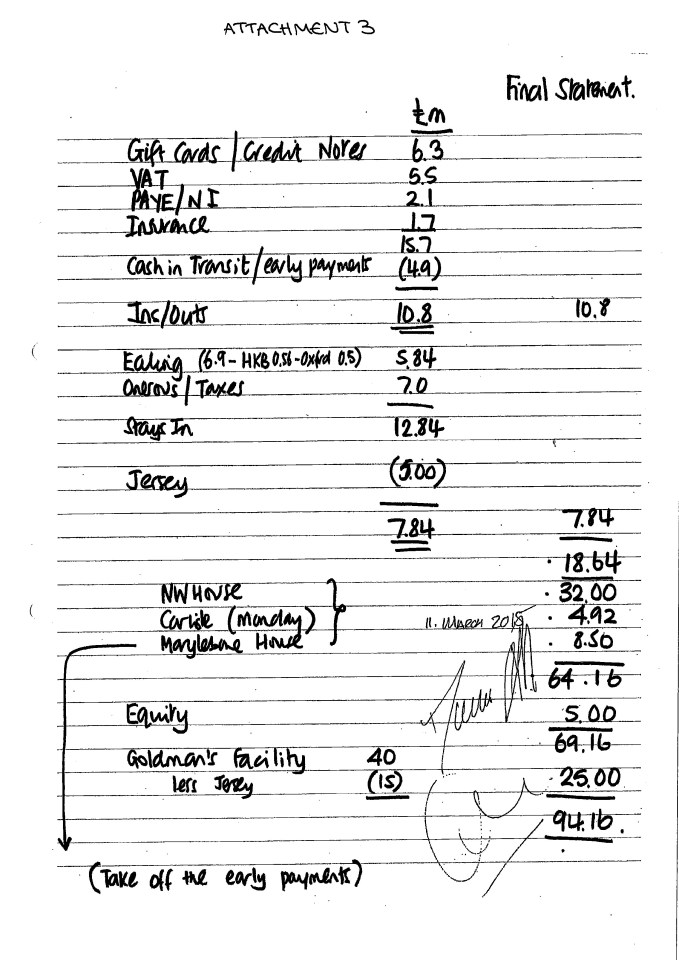 ATTACHMENT 3
Final Statement.
£m
Gift Cards / Credit Notes 6.3
VAT 5.5
PAYE/NI 2.1
Insurance 1.7
15.7
Cash in Transit/early payments (4.9)
Ins/Outs 10.8 10.8
Ealing (6.9 - HKB 0.56 - Oxfrd 0.5) 5.84
Onerous / Taxes 7.0
Stays In 12.84
Jersey (5.00)
7.84 7.84
18.64
NW House 32.00
Carlisle (Monday) 11. MARCH 2015 4.92
Marylebone House 8.50
64.16
Equity 5.00
69.16
Goldman's Facility 40
less Jersey (15) 25.00
94.16.
(Take off the early payments)